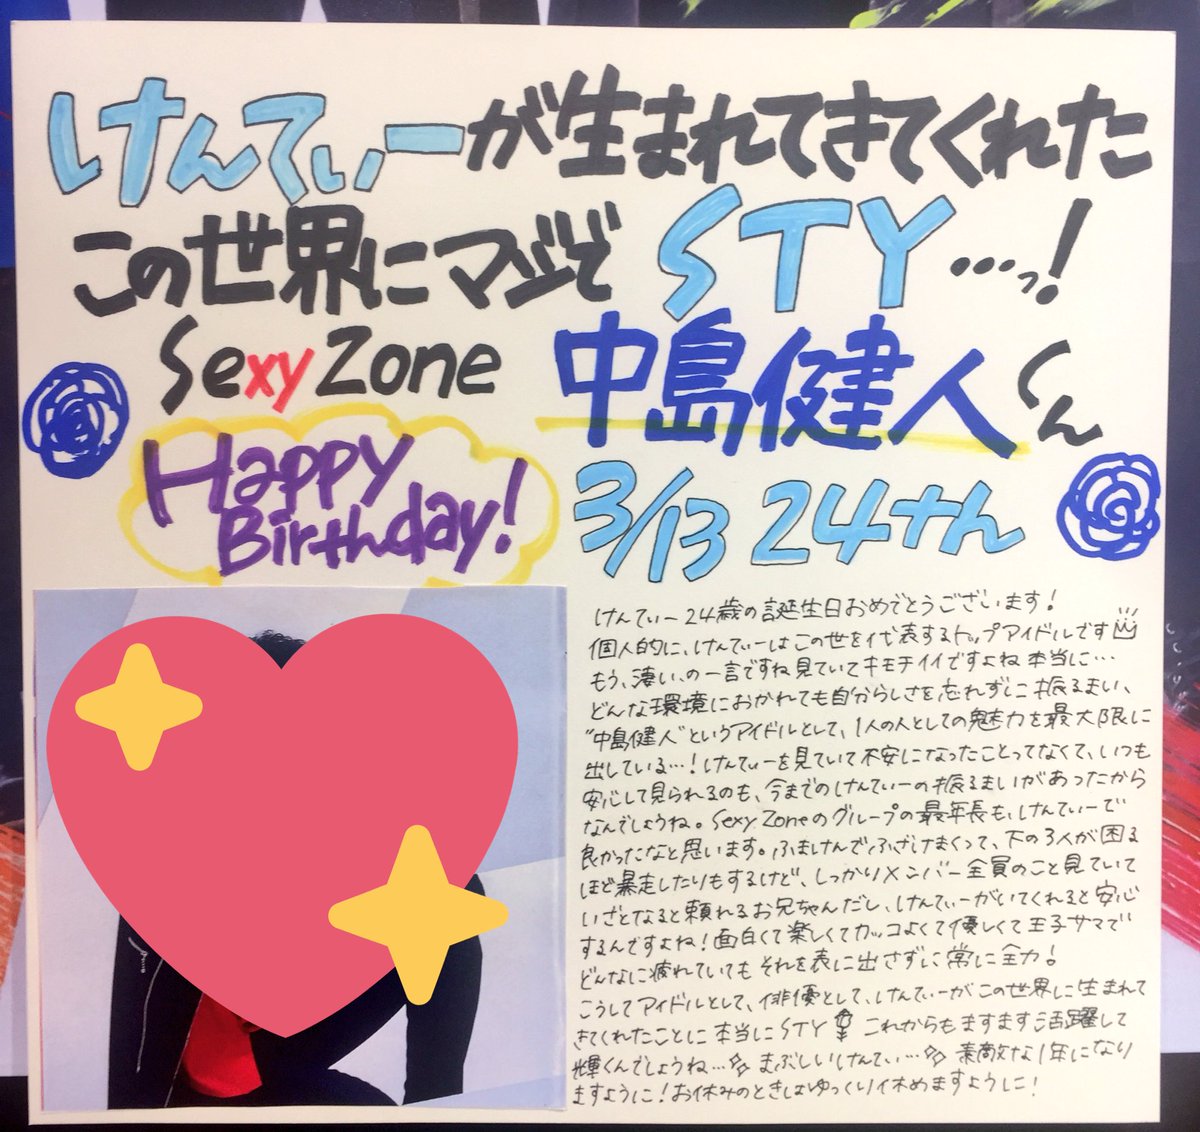 けんてぃーが生まれてきてくれた
この世界にマジぞ STY…っ!
Sexy Zone 中島健人くん
Happy
Birthday!
3/13 24さん
けんてぃー24歳の誕生日おめでとうございます!
個人的に、けんてぃーはこの世を代表するトップアイドルです
もう、凄い、の一言ですね見ていてキモチイイですよね本当に…
どんな環境におかれても自分らしさを忘れずに振るまい、
"中島健人"というアイドルとして、1人の人としての魅力を最大限に
出している…!けんてぃーを見ていて不安になったことってなくて、いつも
安心して見られるのも、今までのけんてぃーの振るまいがあったから
なんでしょうね。Sexy Zoneのグループの最年長も、けんてぃーで
良かったなと思います。ふまけんでふざけまくって、下の3人が困る
ほど暴走したりもするけど、しっかりメンバー全員のこと見ていて
いざとなると頼れるお兄ちゃんだし、けんてぃーがいてくれると安心
するんですよね!面白くて楽しくてカッコよくて優しくて王子サマで
どんなに疲れていてもそれを表に出さずに常に全力!
こうしてアイドルとして、俳優として、けんてぃーがこの世界に生まれて
きてくれたことに本当にSTY これからもますます活躍して
輝くんでしょうね… まぶしいけんてぃ… 素敵な1年になり
ますように!お休みのときはゆっくり休めますように!